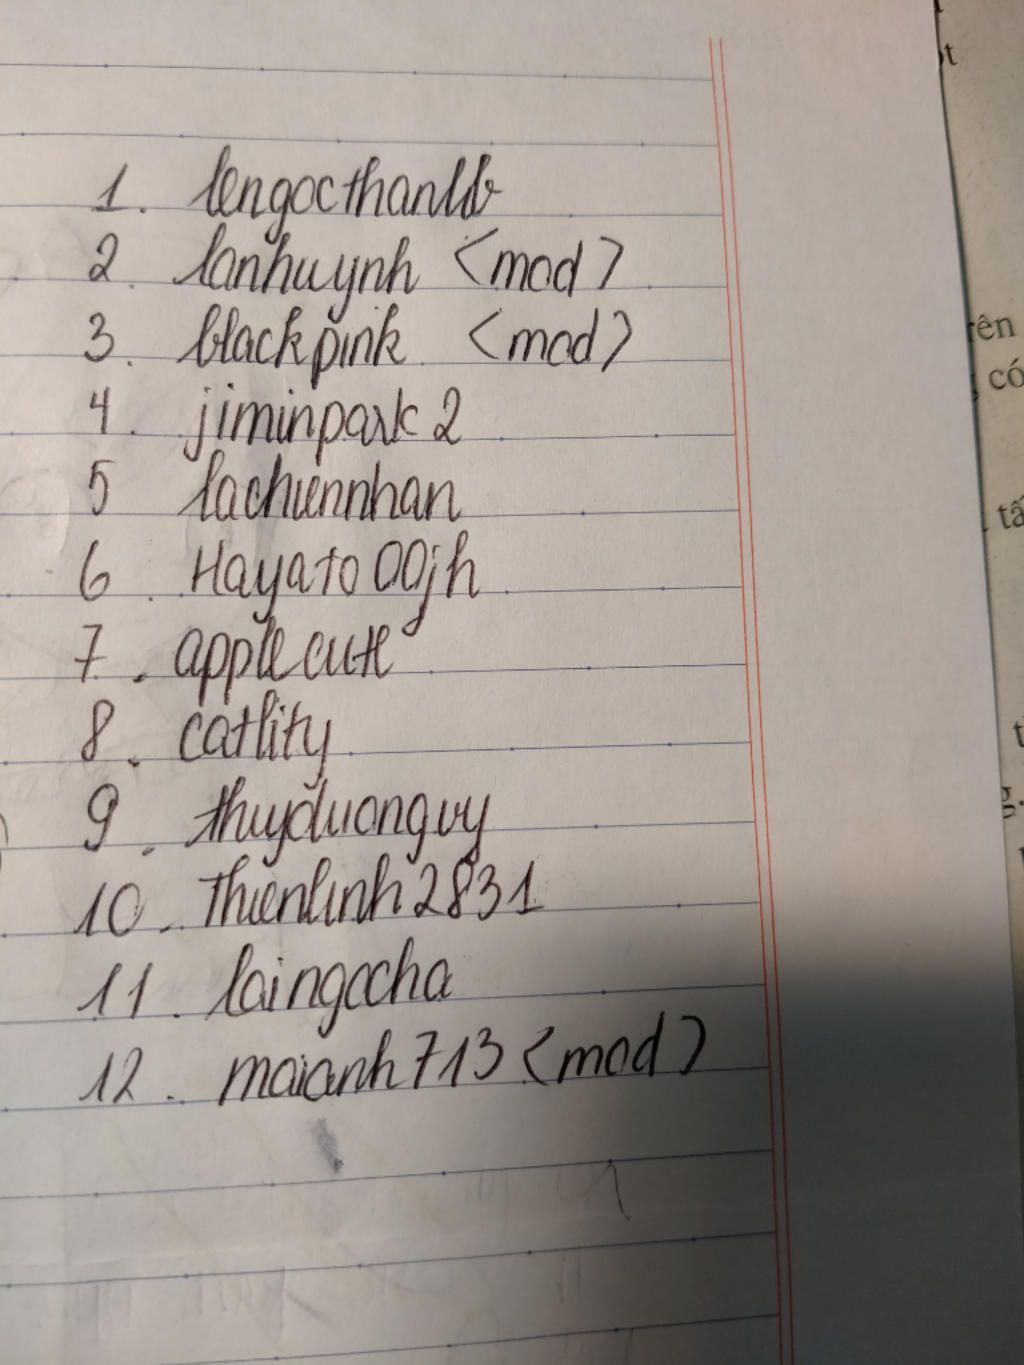 1. lengocthanhb
2. lanhuynh <mod>
3. blackpink <mod>
4. jiminpark2
5 lachiennhan
6. Hayato00jh
7. applecute
8. catlity
9. thuyduongvy
10. Thienlinh2831
11. laingocha
12. maianh713 <mod>
ên
có
tấ